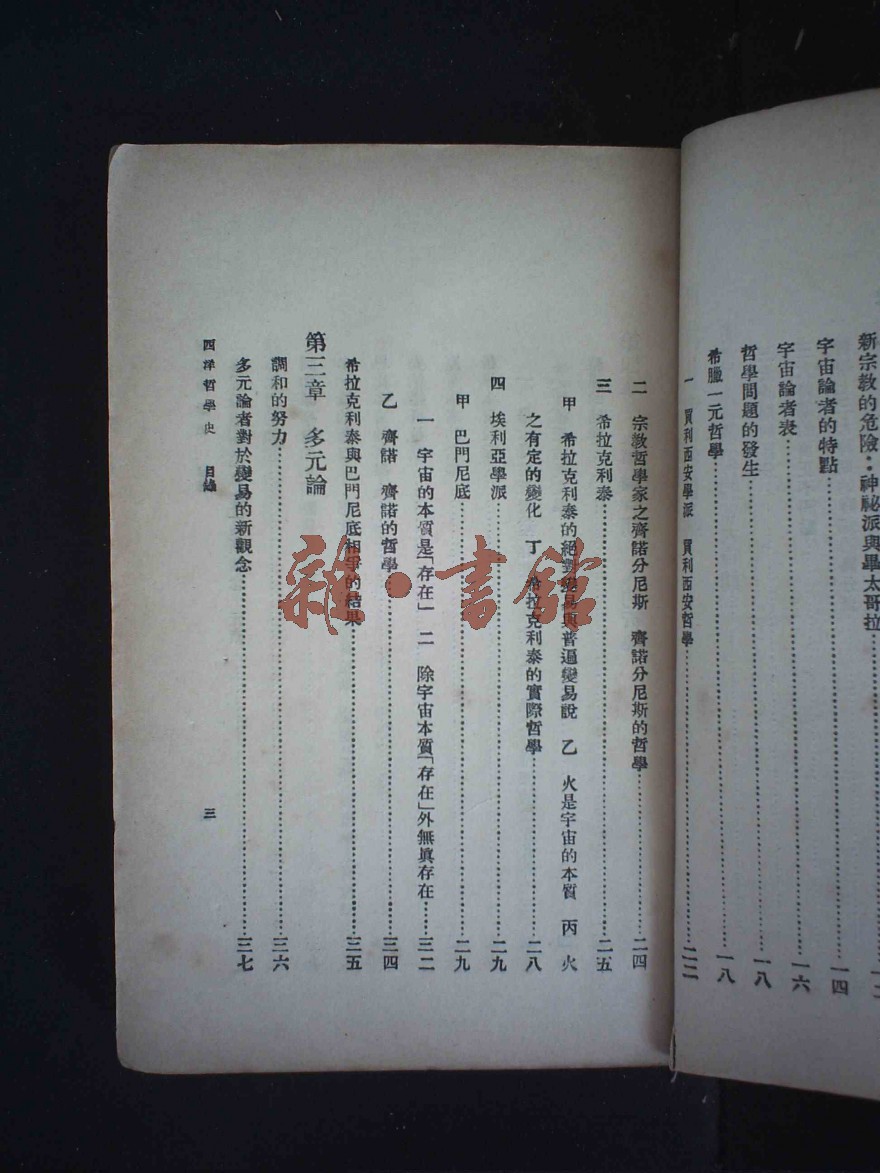 新宗教的危險：神祕派與畢太哥拉
宇宙論者的特點……一四
宇宙論者表……一六
哲學問題的發生……一八
希臘一元哲學……一八
一　買利西安學派　買利西安哲學……二二
二　宗教哲學家之齊諾分尼斯　齊諾分尼斯的哲學……二四
三　希拉克利泰……二五
甲　希拉克利泰的絕對變易與普遍變易說　乙　火是宇宙的本質　丙　火
之有定的變化　丁　希拉克利泰的實際哲學……二八
四　埃利亞學派……二九
甲　巴門尼底……二九
一　宇宙的本質是「存在」　二　除宇宙本質「存在」外無眞存在……三二
乙　齊諾　齊諾的哲學……三四
希拉克利泰與巴門尼底相爭的結果……三五
第三章　多元論
調和的努力……三六
多元論者對於變易的新觀念……三七
西洋哲學史　目錄
三
雜·書館